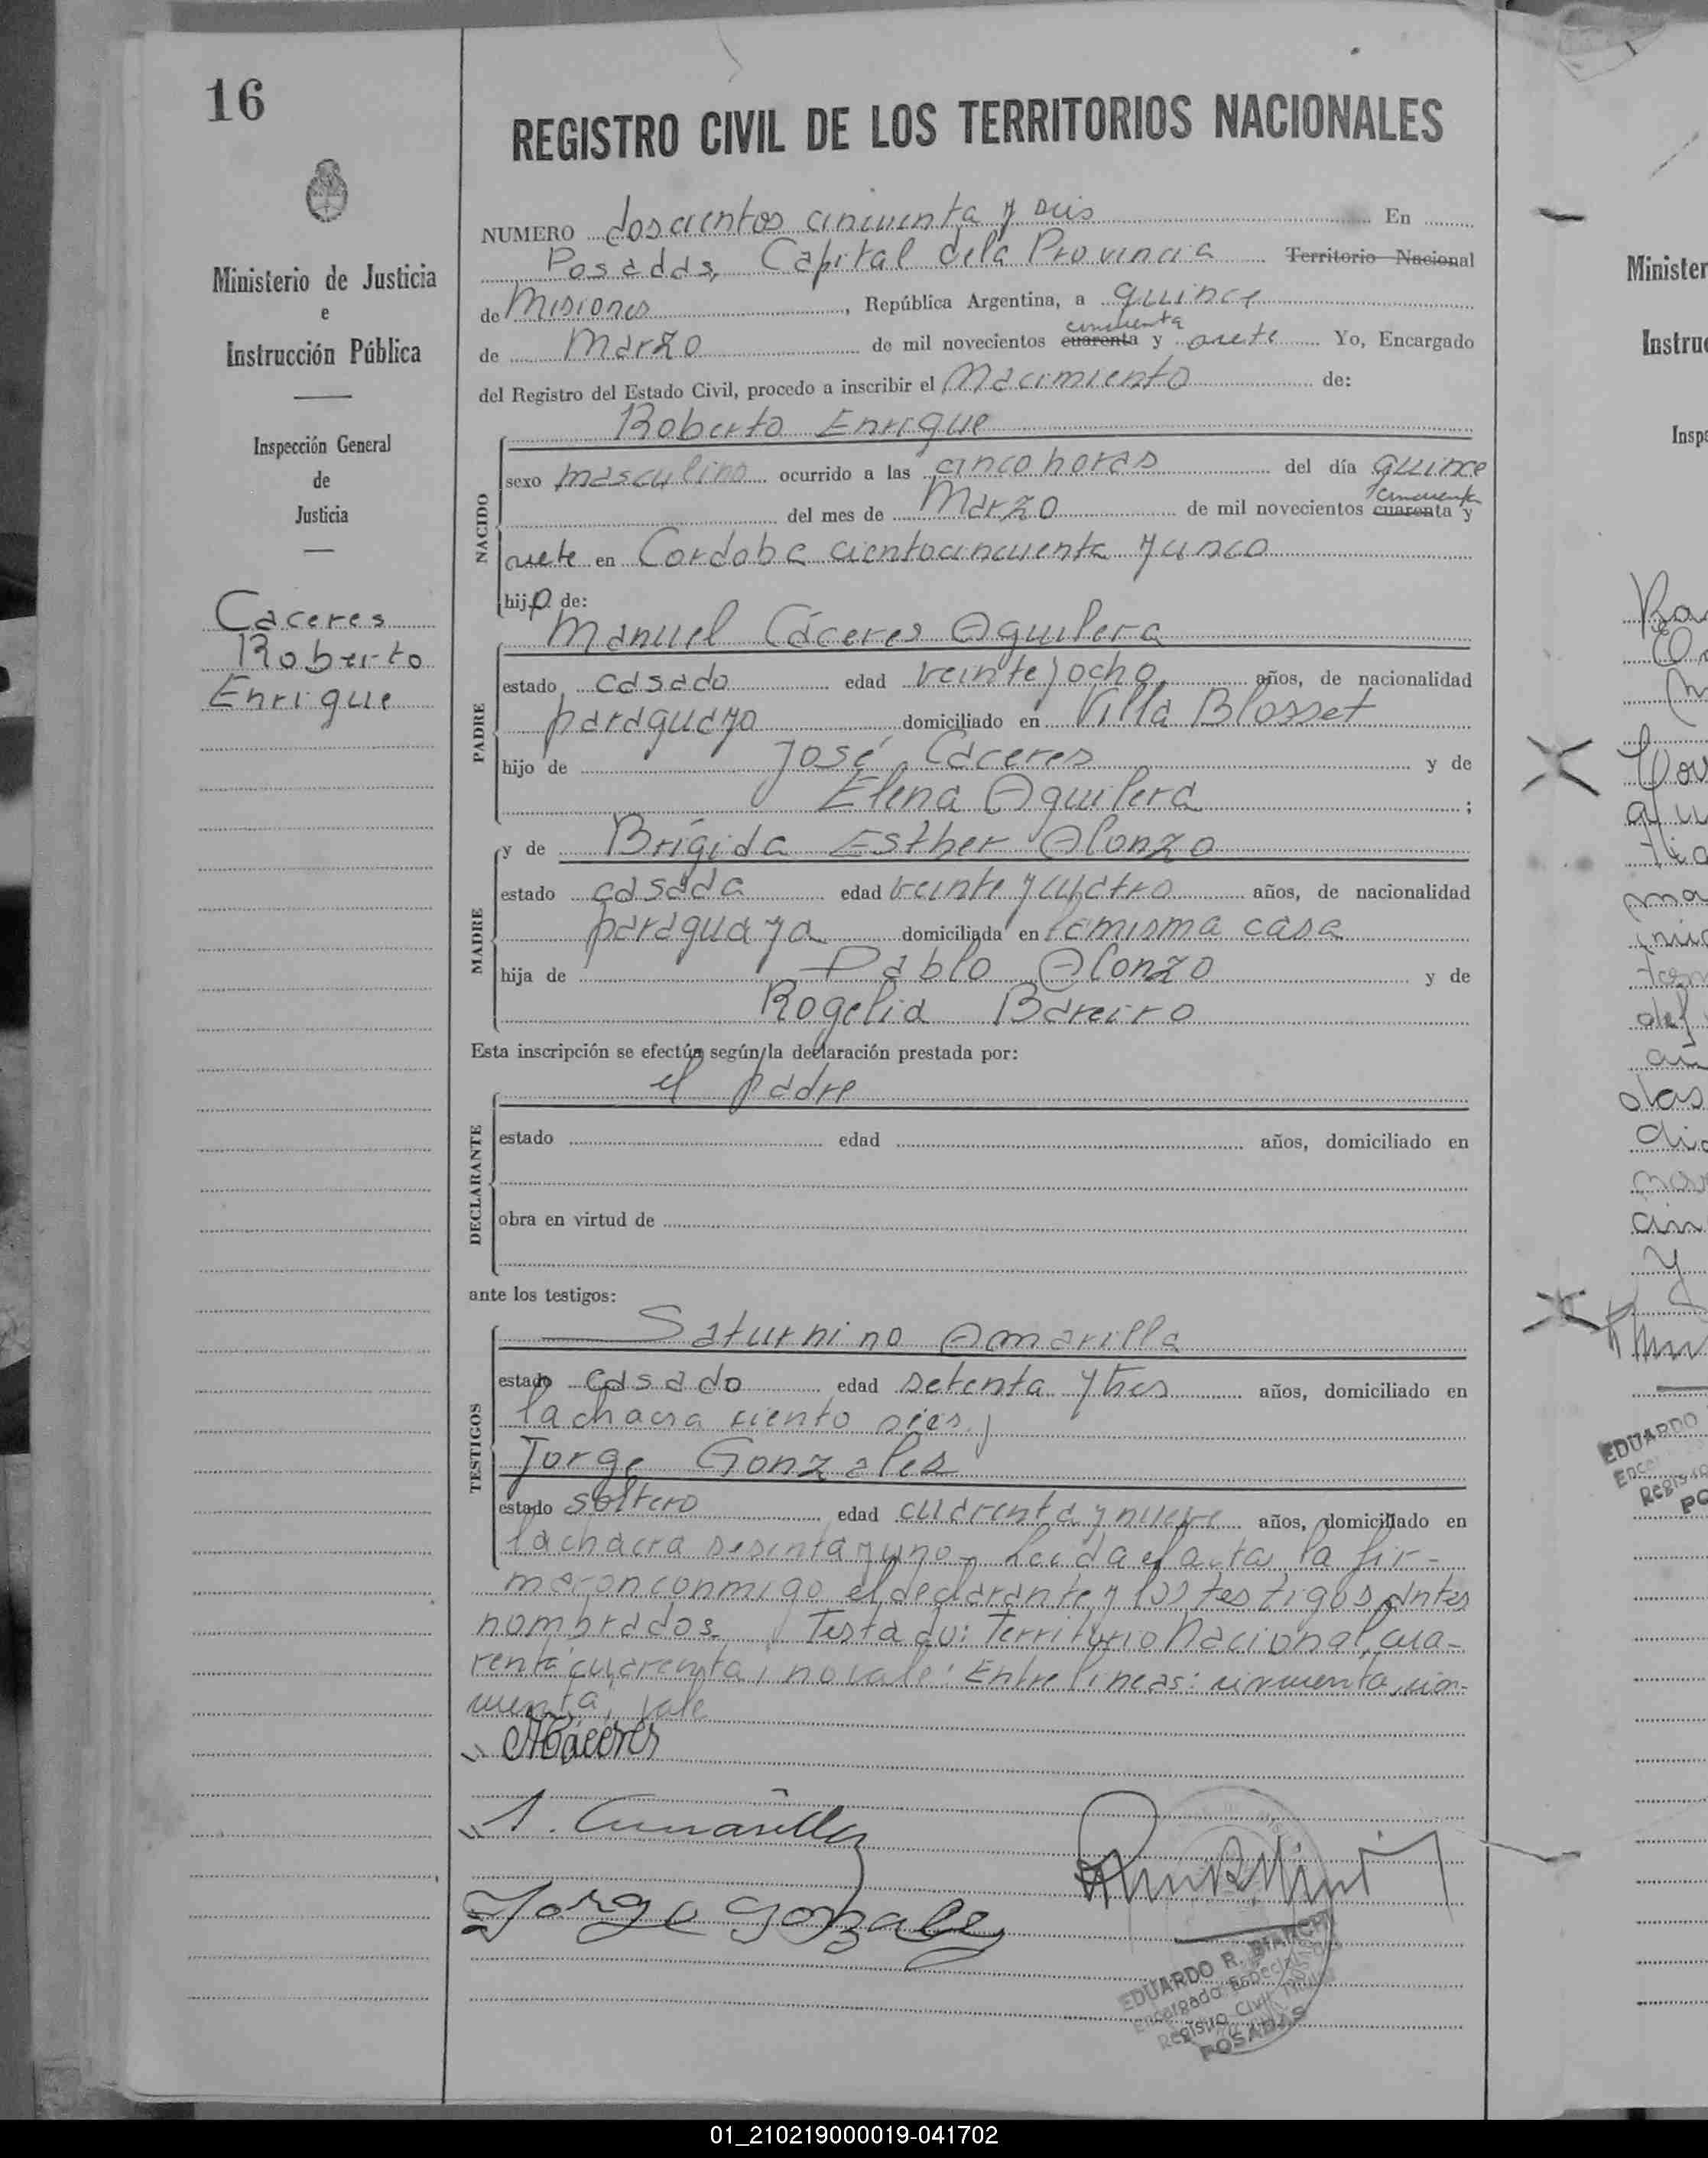 16
Ministerio de Justicia
e
Instrucción Pública
Inspección General
de
Justicia
Caceres
Roberto
Enrique
REGISTRO CIVIL DE LOS TERRITORIOS NACIONALES
NUMERO doscientos cincuenta y seis En
Posadas, Capital dela Provincia Territorio Nacional
de Misiones, República Argentina, a quince
cincuenta
de Marzo de mil novecientos cuarenta y siete Yo, Encargado
del Registro del Estado Civil, procedo a inscribir el Nacimiento de:
Roberto Enrique
NACIDO
sexo masculino ocurrido a las cinco horas del día quince
cincuenta
del mes de Marzo de mil novecientos cuarenta y
siete en Cordoba cientocincuenta y cinco
hijo de:
Manuel Cáceres Aguilera
PADRE
estado casado edad veinte y ocho años, de nacionalidad
paraguayo domiciliado en Villa Blosset
hijo de José Caceres y de
Elena Aguilera ;
y de Brígida Esther Alonzo
MADRE
estado casada edad veinte y cuatro años, de nacionalidad
paraguaya domiciliada en la misma casa
hija de Pablo Alonzo y de
Rogelia Bareiro
Esta inscripción se efectúa según la declaración prestada por:
el padre
DECLARANTE
estado edad años, domiciliado en
obra en virtud de
ante los testigos:
Saturnino Amarilla
TESTIGOS
estado casado edad setenta y tres años, domiciliado en
la chacra ciento y
Jorge Gonzales
estado soltero edad cuarenta y nueve años, domiciliado en
la chacra sesenta y uno - Leida el acta, la fir-
maron conmigo el declarante y los testigos antes
nombrados. Testado: Territorio Nacional, cua-
renta cuarenta, no vale: Entre lineas: cincuenta, cin-
cuenta, vale
MCáceres
S. Amarilla
Jorge Gonzalez
EDUARDO R. BIANCHI
Encargado Especial
Registro Civil
POSADAS
Minister
Instru
Insp
EDUARDO
Enc
Registro
PO
01_210219000019-041702